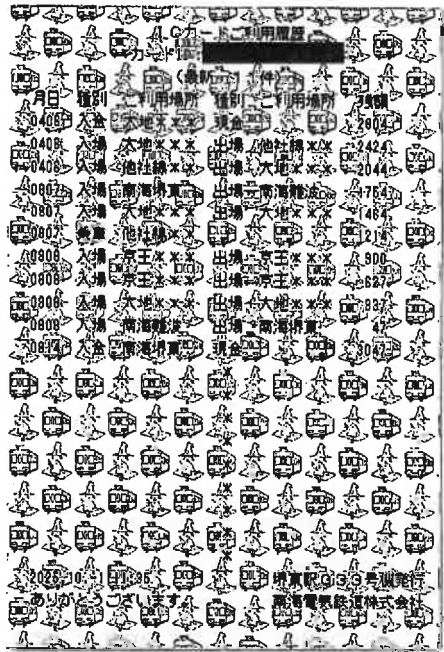 ICカードご利用履歴
カードID
(最新 11 件)
月日 種別 ご利用場所 種別 ご利用場所 残額
0406 入金 大地*** 現金 2804
0406 入場 大地*** 出場 他社線** 2424
0406 入場 他社線** 出場 大地*** 2044
0807 入場 南海堺東 出場 南海難波 1754
0807 入場 大地*** 出場 大地*** 1464
0807 他社線** 121
0808 入場 京王*** 出場 京王*** 900
0808 入場 京王*** 出場 京王*** 627
0808 入場 大地*** 出場 大地*** 337
0808 入場 南海難波 出場 南海堺東 47
入金 南海堺東 現金 3047
堺東駅 333号機発行
ありがとうございます 南海電気鉄道株式会社